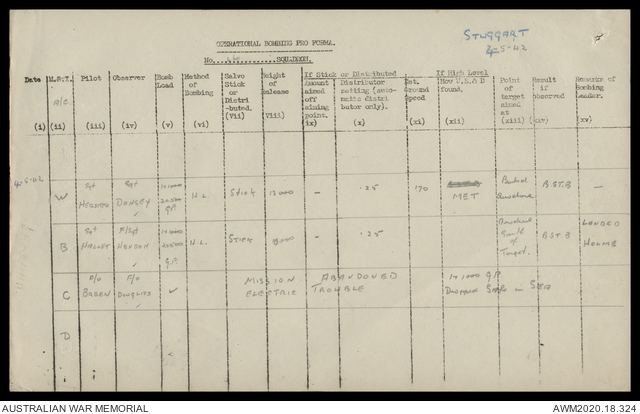 STUGGART
4-5-42
OPERATIONAL BOMBING PRO FORMA.
No. SQUADRON.
Date M.&.T. Pilot Observer Bomb Load Method of Bombing Salvo Stick or Distri-buted. Height of Release If Stick or Distributed If High Level Point of target aimed at Result if observed Remarks of Bombing Leader.
A/C
Amount aimed off aiming point. Distributor setting (automatic distributor only). Est. Ground Speed How U.S.& D found.
(i) (ii) (iii) (iv) (v) (vi) (Vii) Viii) ix) (x) (xi) (xii) (xiii) (xiv) xv)
4-5-42 W Sgt Sgt DANGBY 1x1000 2x500 G.P. H.L. STICK 12000 - .25 170 MET B.ST.B -
B Sgt F/Sgt 1x1000 2x500 G.P. H.L. STICK 8000 .25 South of Target. B.ST.B LANDED HOLME
C P/O BREEN F/O DOUGLAS ✓ MISSION ABANDONED
ELECTRIC TROUBLE
1x1000 G.P.
Dropped Safe in SEA
D
AUSTRALIAN WAR MEMORIAL
AWM2020.18.324